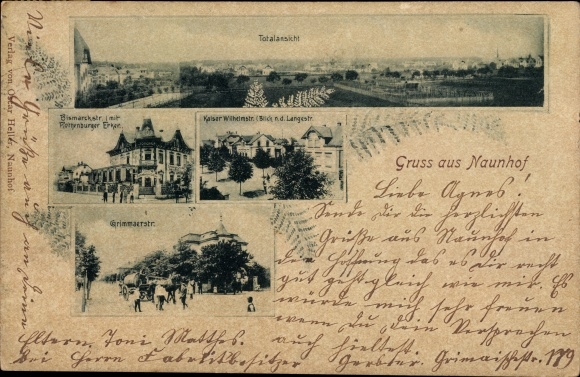 Totalansicht
Bismarckstr. mit
Rothenburger Erker.
Kaiser Wilhelmstr. (Blick n.d. Langestr.
Grimmaerstr.
Gruss aus Naunhof
Verlag von Oskar Heller, Naunhof.
Liebe Agnes!
Sende dir die herzlichsten
Grüße aus Naunhof in
die Hoffnung das es Dir recht
gut geht gleich wie mir. Es
würde mich sehr freuen
wenn du dein Versprechen
auch hieltest.
Viele Grüße an
Eltern, Toni Matthes.
bei Herrn Fabrikbesitzer Gerber. Grimaischestr. 179